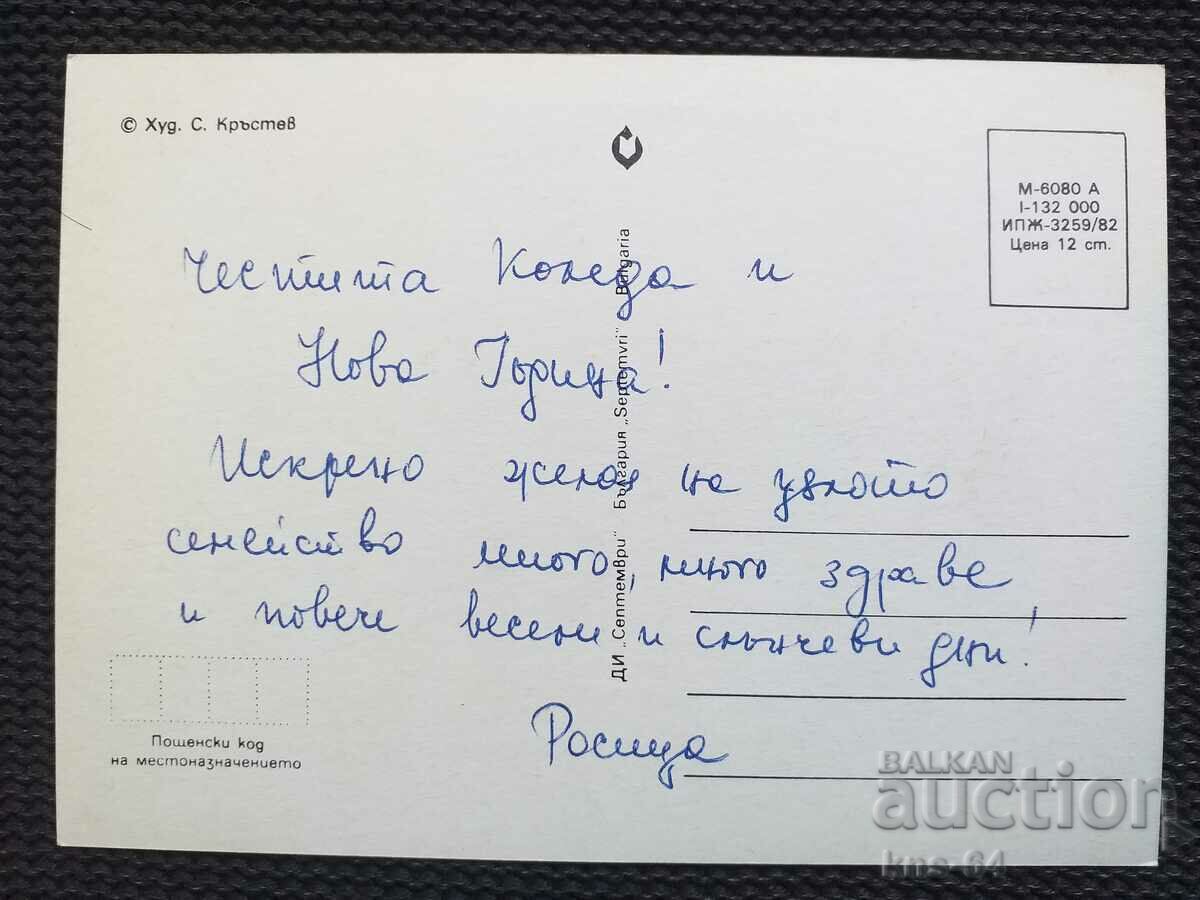 © Худ. С. Кръстев
М-6080 А
I-132 000
ИПЖ-3259/82
Цена 12 ст.
Честита Коледа и
Нова Година!
Искрено желая на цялото
семейство много, много здраве
и повече весели и слънчеви дни!
Росица
ДИ „Септември" България „Septemvri" Bulgaria
Пощенски код
на местоназначението
BALKAN
auction
kns-64